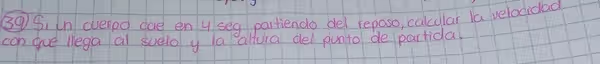 39) Si un cuerpo cae en 4 seg partiendo del reposo, calcular la velocidad
con que llega al suelo y la altura del punto de partida.